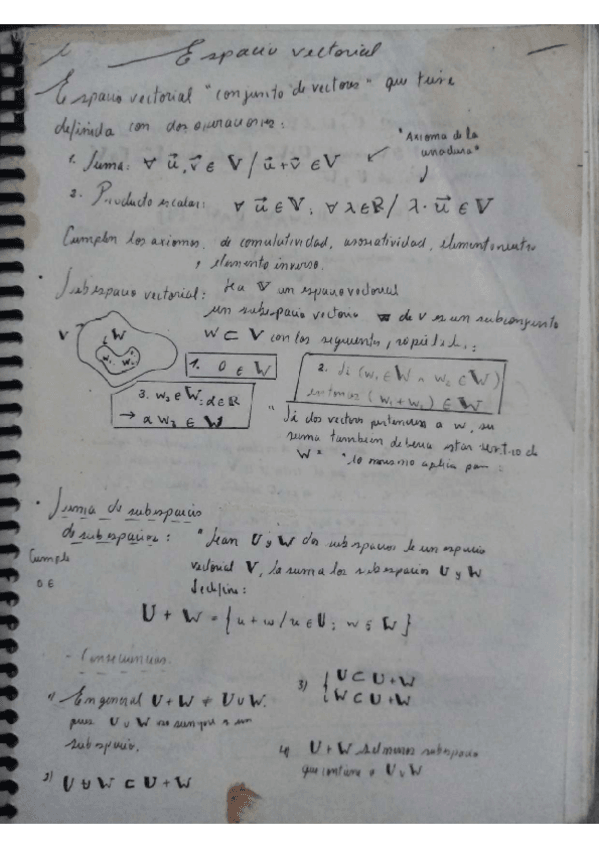 Espacio vectorial
Espacio vectorial "conjunto de vectores" que tiene
definida con dos operaciones:
"Axioma de la
1. Suma: ∀ u⃗, v⃗ ∈ V / u⃗ + v⃗ ∈ V
2. Producto escalar: ∀ u⃗ ∈ V, ∀ λ ∈ R / λ · u⃗ ∈ V
Cumplen los axiomas de comulatividad, asociatividad, elemento neutro
, elemento inverso.
Subespacio vectorial: Sea V un espacio vectorial
un subespacio vectorial de V es un subconjunto
W ⊂ V con las siguientes
V W
w₁ w₂
1. 0 ∈ W
2. Si (w₁ ∈ W ∧ w₂ ∈ W)
entonces (w₁ + w₂) ∈ W
3. w₂ ∈ W; α ∈ R
→ α w₂ ∈ W
"Si dos vectores pertenecen a W, su
suma tambien deberia estar dentro de
W" "lo mismo aplica para :
Suma de subespacios
de subespacios: "Sean U y W dos subespacios de un espacio
Cumple
vectorial V, la suma los subespacios U y W
0 ∈
se define:
U + W = {u + w / u ∈ U; w ∈ W}
- Consecuencias.
1) En general U + W ≠ U ∪ W.
pues U ∪ W no siempre es un
subespacio.
2) U ∪ W ⊂ U + W
3) { U ⊂ U + W
W ⊂ U + W
4) U + W es el menor subespacio
que contiene a U ∪ W